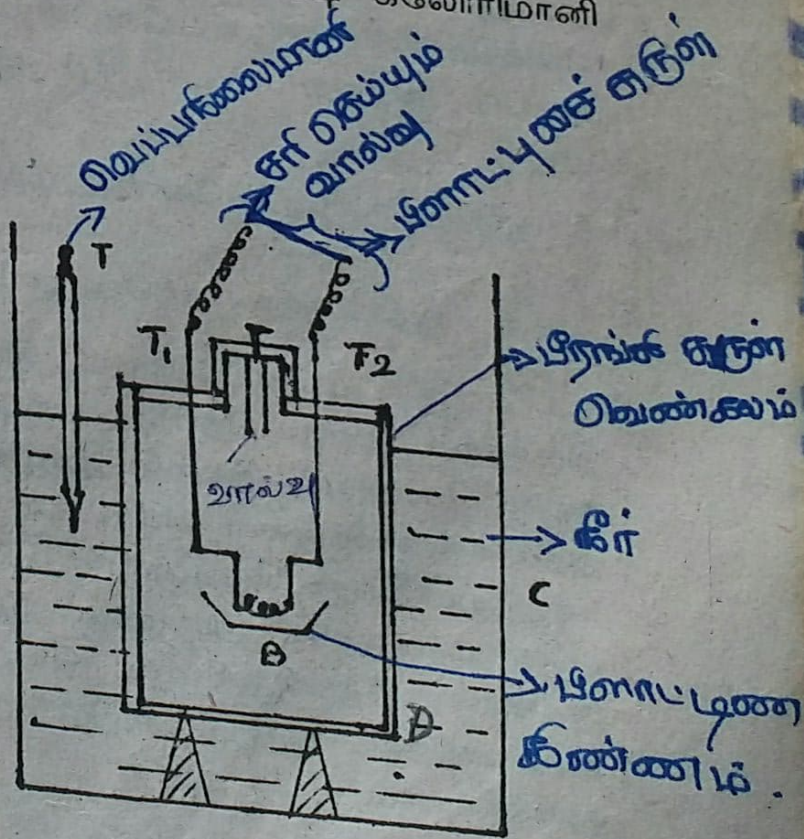 கலோரிமானி
வெப்பநிலைமானி
சரி செய்யும்
வால்வு
பிளாட்புணச் சுருள்
T
T₁
T₂
பீரங்கி சுருள்
வெண்கலம்
வால்வு
நீர்
C
B
பிளாட்டிண
கிண்ணம்.
D